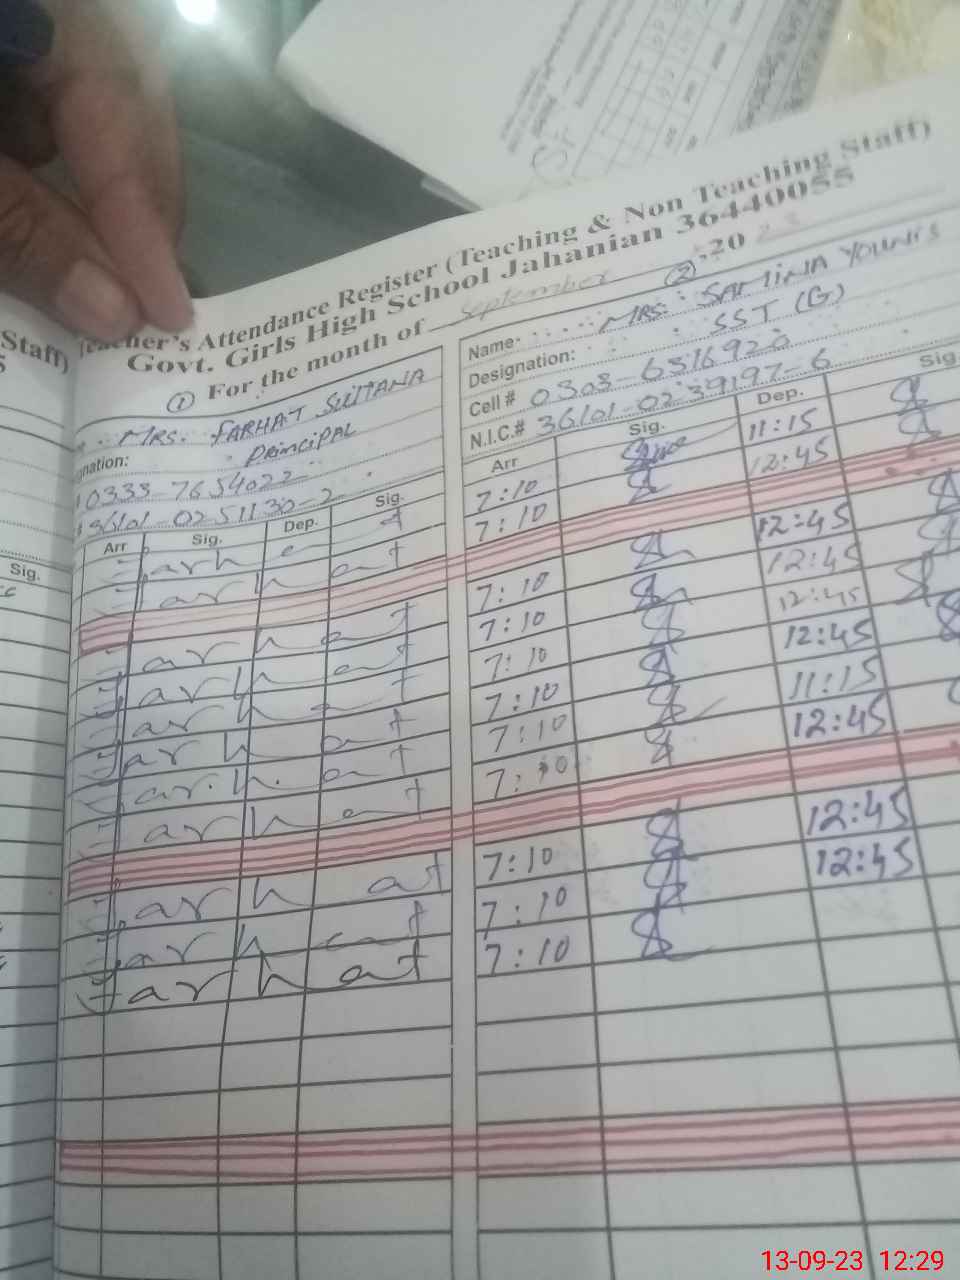 Staff)
Teacher's Attendance Register (Teaching & Non Teaching Staff)
Govt. Girls High School Jahanian 36440055
For the month of September 20 23
①
MRS. FARHAT SULTANA
nation: PRINCIPAL
0333-7654022
36101-0251130-2
Arr Sig. Dep. Sig.
Farhat
Farhat
Farhat
Farhat
Farhat
Farhat
Far.h.at
Farhat
Farhat
Farhat
Farhat
②
Name: MRS: SAMINA YOUNIS
Designation: SST (G)
Cell # 0303-6316920
N.I.C.# 36101-0239197-6
Arr Sig. Dep. Sig
7:10 11:15
7:10 12:45
7:10 12:45
7:10 12:45
7:10 12:45
7:10 12:45
7:10 11:15
7:10 12:45
7:10 12:45
7:10 12:45
7:10
Sig.
13-09-23 12:29